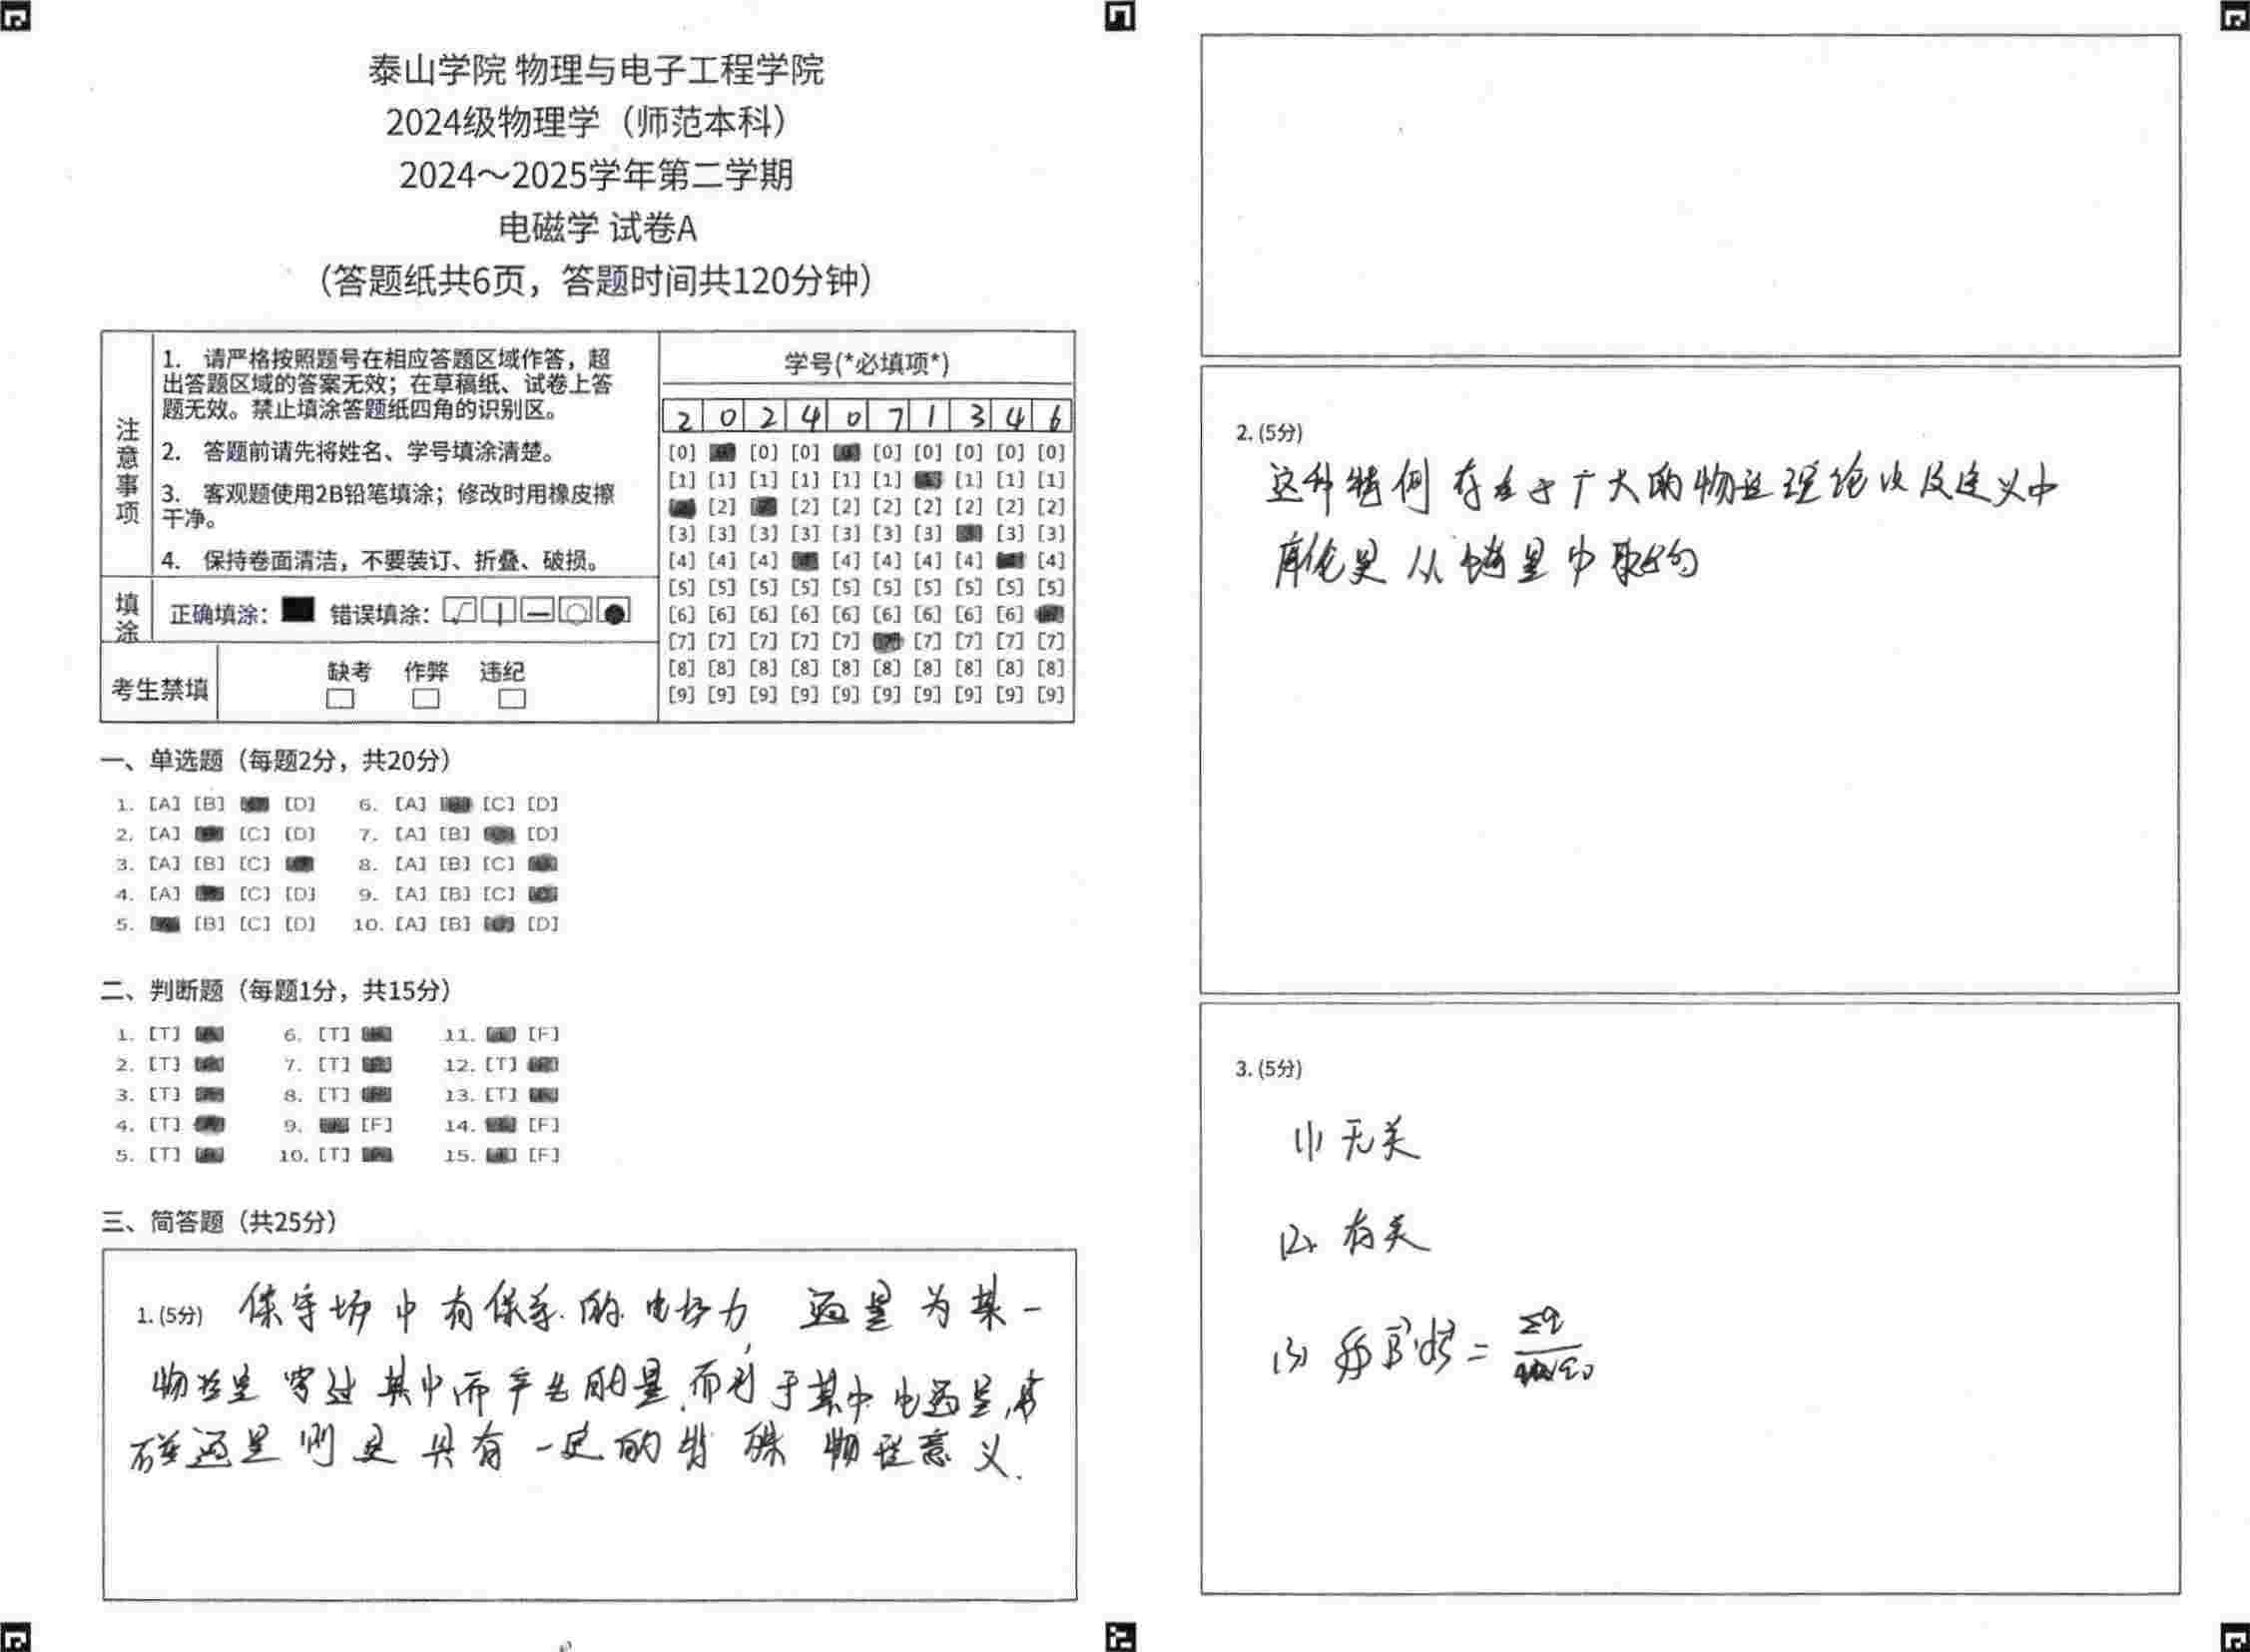 泰山学院 物理与电子工程学院
2024级物理学（师范本科）
2024～2025学年第二学期
电磁学 试卷A
（答题纸共6页，答题时间共120分钟）
注意事项
1. 请严格按照题号在相应答题区域作答，超
出答题区域的答案无效；在草稿纸、试卷上答
题无效。禁止填涂答题纸四角的识别区。
2. 答题前请先将姓名、学号填涂清楚。
3. 客观题使用2B铅笔填涂；修改时用橡皮擦
干净。
4. 保持卷面清洁，不要装订、折叠、破损。
填涂
正确填涂： 错误填涂：
考生禁填
缺考 作弊 违纪
学号(*必填项*)
2 0 2 4 0 7 1 3 4 6
[0] [0] [0] [0] [0] [0] [0] [0]
[1] [1] [1] [1] [1] [1] [1] [1] [1]
[2] [2] [2] [2] [2] [2] [2] [2]
[3] [3] [3] [3] [3] [3] [3] [3] [3]
[4] [4] [4] [4] [4] [4] [4] [4]
[5] [5] [5] [5] [5] [5] [5] [5] [5] [5]
[6] [6] [6] [6] [6] [6] [6] [6] [6]
[7] [7] [7] [7] [7] [7] [7] [7] [7]
[8] [8] [8] [8] [8] [8] [8] [8] [8] [8]
[9] [9] [9] [9] [9] [9] [9] [9] [9] [9]
一、单选题（每题2分，共20分）
1. [A] [B] [D] 6. [A] [C] [D]
2. [A] [C] [D] 7. [A] [B] [D]
3. [A] [B] [C] 8. [A] [B] [C]
4. [A] [C] [D] 9. [A] [B] [C]
5. [B] [C] [D] 10. [A] [B] [D]
二、判断题（每题1分，共15分）
1. [T] 6. [T] 11. [F]
2. [T] 7. [T] 12. [T]
3. [T] 8. [T] 13. [T]
4. [T] 9. [F] 14. [F]
5. [T] 10. [T] 15. [F]
三、简答题（共25分）
1. (5分) 保守场中有保守的电场力，通量为某一
物理量穿过其中而产生的量，而对于其中电通量，
磁通量则是具有一定的特殊物理意义.
2. (5分)
这种特例存在于广大的物理理论以及定义中
库伦是从 量中取的
3. (5分)
(1) 无关
(2) 有关
(3) ∯ · d =